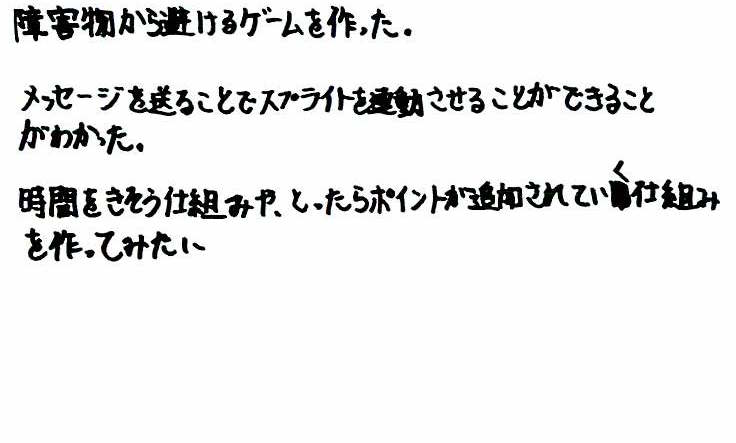 障害物から避けるゲームを作った。
メッセージを送ることでスプライトを連動させることができること
がわかった。
時間をきそう仕組みや、とったらポイントが追加されていく仕組み
を作ってみたい